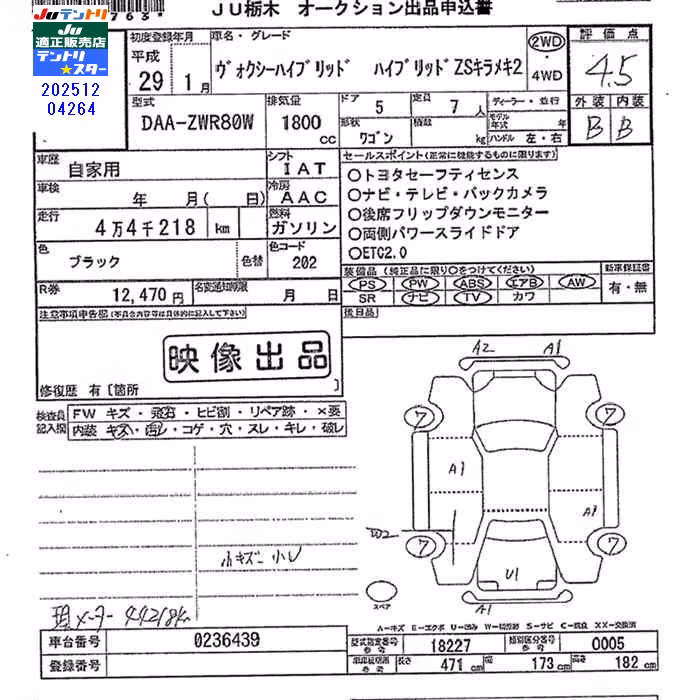 JU栃木 オークション出品申込書
Juテントリ
JU 適正販売店
テントリ★スター
202512
04264
初度登録年月
平成
29 1月
車名・グレード
ヴォクシーハイブリッド ハイブリッドZSキラメキ2
2WD
・
4WD
評価点
4.5
外装 内装
B B
型式
DAA-ZWR80W
排気量
1800 cc
ドア 5
定員 7人
形状 ワゴン
積数 kg
ディーラー・並行
モデル年式 年
ハンドル 左・右
車歴 自家用
シフト IAT
車検 年 月( 日)
冷房 AAC
走行 4万4千218 km
燃料 ガソリン
色 ブラック 色替
色コード 202
R券 12,470円
名変通知期限 月 日
セールスポイント(正常に機能するものに限ります)
○トヨタセーフティセンス
○ナビ・テレビ・バックカメラ
○後席フリップダウンモニター
○両側パワースライドドア
○ETC2.0
装備品(純正品に限り○をつけてください)
新車保証書
PS PW ABS エアB AW
SR ナビ TV カワ
有・無
後日品
注意事項申告欄(不具合内容等は具体的に記入して下さい)
映像出品
修復歴 有〔箇所 〕
検査員記入欄
FW キズ・飛石・ヒビ割・リペア跡・×要
内装 キズ・汚レ・コゲ・穴・スレ・キレ・破レ
小キズ 小レ
現メーター 44218km
A2 A1
7 7
A1
A1
W2
7 7
U1
A1
スペア
A-キズ E-エクボ U-凹み W-補修跡 S-サビ C-腐食 XX-交換済
車台番号 0236439
登録番号
型式指定番号 参考 18227
類別区分番号 参考 0005
長さ 471cm
幅 173cm
高さ 182cm